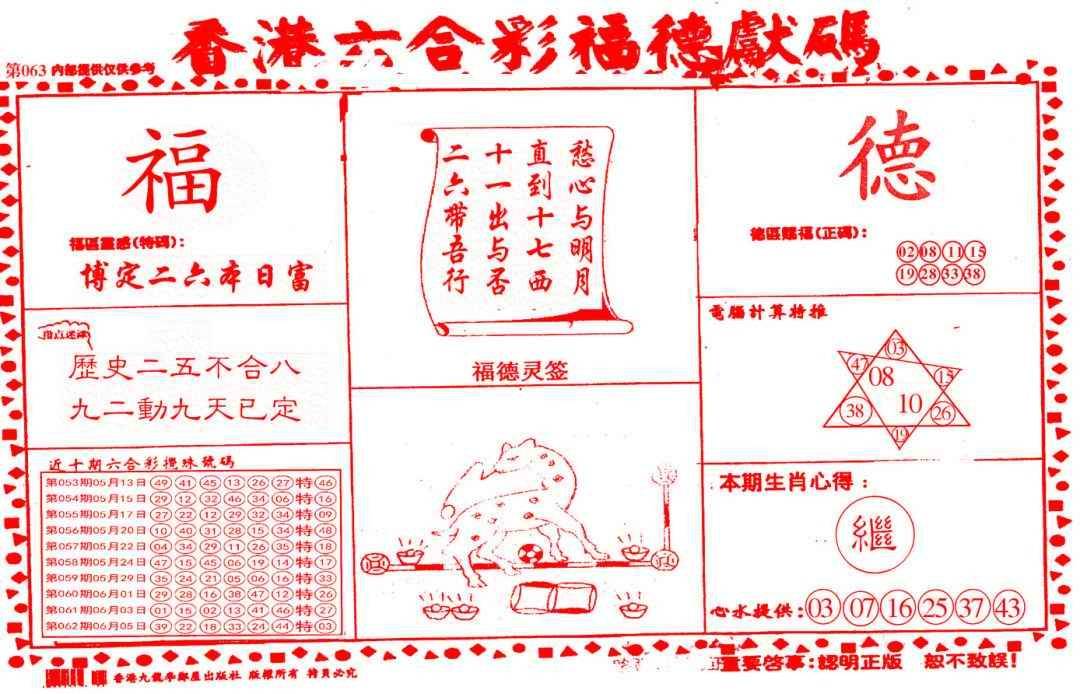 香港六合彩福德獻碼
第063 内部提供仅供参考
福
福區靈感(特碼)：
博定二六本日富
指点迷津
歷史二五不合八
九二動九天已定
近十期六合彩攪珠號碼
第053期05月13日 49 41 45 13 26 27 特 46
第054期05月15日 29 12 32 46 34 06 特 16
第055期05月17日 27 22 12 29 32 34 特 09
第056期05月20日 10 40 31 28 15 34 特 48
第057期05月22日 04 34 29 11 26 35 特 18
第058期05月24日 47 15 45 06 19 14 特 17
第059期05月29日 35 24 21 05 06 16 特 33
第060期06月01日 29 28 16 38 47 12 特 26
第061期06月03日 01 15 02 13 41 46 特 27
第062期06月05日 39 22 18 33 24 44 特 03
愁心与明月
直到十七西
十一出与否
二六帶吾行
福德灵签
德
德區賜福(正碼)：
02 08 11 15
19 28 33 38
電腦計算特推
03
47 08 15
38 10 26
19
本期生肖心得：
繼
心水提供：03 07 16 25 37 43
重要啓事：認明正版 恕不致誤！
版權所有